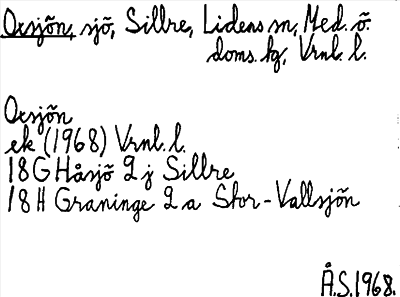 Oxsjön, sjö, Sillre, Lidens sn, Med. ö.
doms. hg, Vrnl. l.
Oxsjön
ek (1968) Vrnl. l.
18G Håsjö 2 j Sillre
18 H Graninge 2 a Stor-Vallsjön
Å.S. 1968.